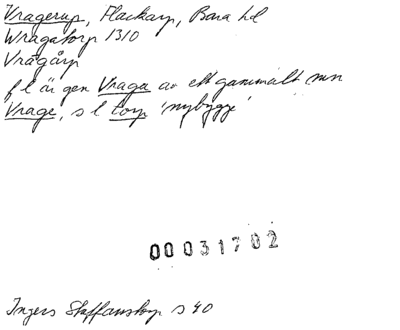 Vragerup, Flackarp, Bara hd
Wragatorp 1310
Vrågårp
f l är gen Vraga av ett gammalt mn
Vrage, s l torp 'nybygge'
00031702
Ingers Staffanstorp s 40